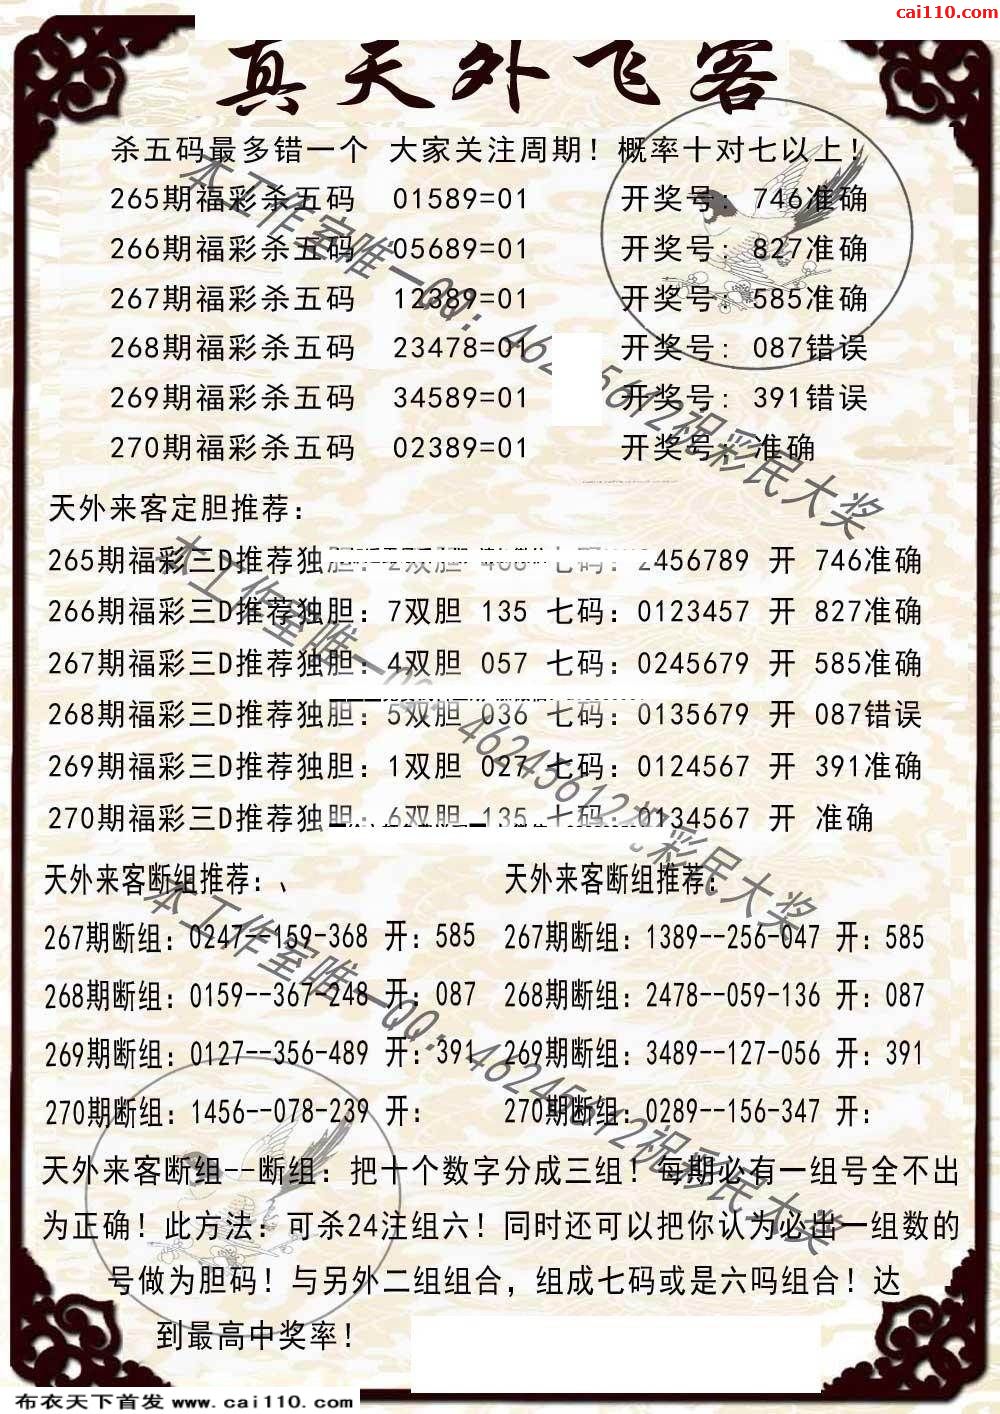 cai110.com
真天外飞客
杀五码最多错一个 大家关注周期！概率十对七以上！
265期福彩杀五码 01589=01 开奖号: 746准确
266期福彩杀五码 05689=01 开奖号: 827准确
267期福彩杀五码 12389=01 开奖号: 585准确
268期福彩杀五码 23478=01 开奖号: 087错误
269期福彩杀五码 34589=01 开奖号: 391错误
270期福彩杀五码 02389=01 开奖号: 准确
本工作室唯一QQ: 462 5612祝彩民大奖
天外来客定胆推荐:
265期福彩三D推荐独胆: 2双胆 468 七码: 2456789 开 746准确
266期福彩三D推荐独胆: 7双胆 135 七码: 0123457 开 827准确
267期福彩三D推荐独胆: 4双胆 057 七码: 0245679 开 585准确
268期福彩三D推荐独胆: 5双胆 036 七码: 0135679 开 087错误
269期福彩三D推荐独胆: 1双胆 027 七码: 0124567 开 391准确
270期福彩三D推荐独胆: 6双胆 135 七码: 0134567 开 准确
本工作室唯一QQ: 46245612祝彩民大奖
天外来客断组推荐:、 天外来客断组推荐:
267期断组: 0247--159-368 开: 585 267期断组: 1389--256-047 开: 585
268期断组: 0159--367-248 开: 087 268期断组: 2478--059-136 开: 087
269期断组: 0127--356-489 开: 391 269期断组: 3489--127-056 开: 391
270期断组: 1456--078-239 开: 270期断组: 0289--156-347 开:
本工作室唯一QQ: 46245612祝彩民大奖
天外来客断组--断组: 把十个数字分成三组！每期必有一组号全不出
为正确！此方法: 可杀24注组六！同时还可以把你认为必出一组数的
号做为胆码！与另外二组组合, 组成七码或是六吗组合！达
到最高中奖率！
布衣天下首发 www.cai110.com